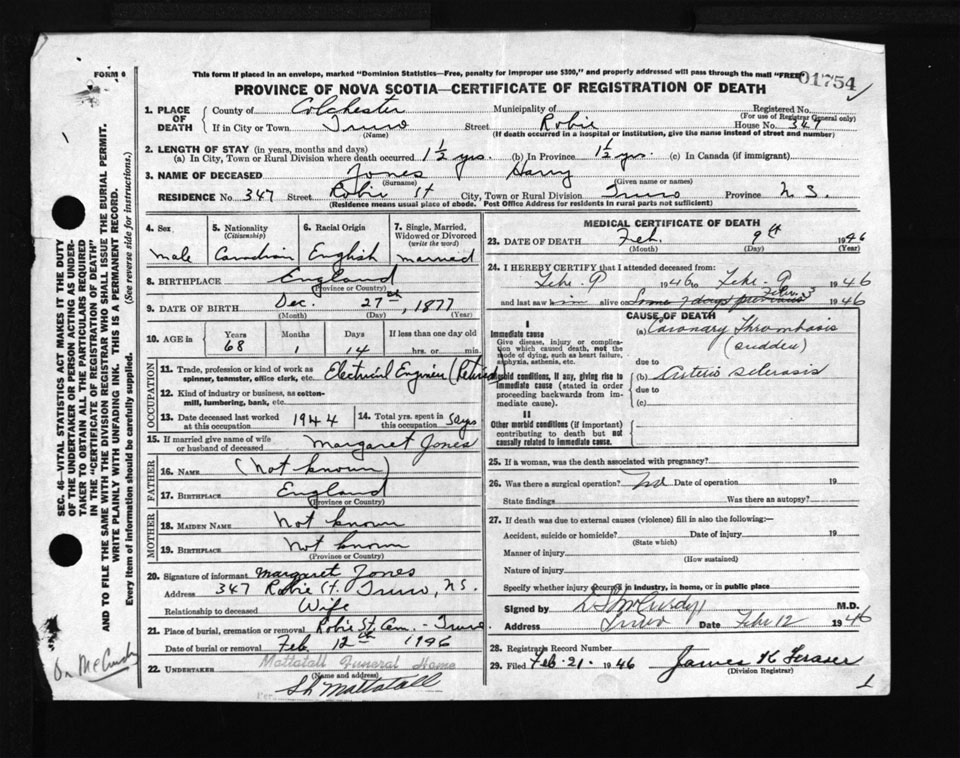 FORM 6
This form if placed in an envelope, marked "Dominion Statistics—Free, penalty for improper use $300," and properly addressed will pass through the mail "FREE"
01754
PROVINCE OF NOVA SCOTIA—CERTIFICATE OF REGISTRATION OF DEATH
SEC. 46—VITAL STATISTICS ACT MAKES IT THE DUTY
OF THE UNDERTAKER OR PERSON ACTING AS UNDER-
TAKER TO OBTAIN ALL THE PARTICULARS REQUIRED
IN THE "CERTIFICATE OF REGISTRATION OF DEATH"
AND TO FILE THE SAME WITH THE DIVISION REGISTRAR WHO SHALL ISSUE THE BURIAL PERMIT.
WRITE PLAINLY WITH UNFADING INK. THIS IS A PERMANENT RECORD.
Every item of information should be carefully supplied. (See reverse side for instructions.)
1. PLACE OF DEATH
County of Colchester Municipality of Registered No.
(For use of Registrar General only)
If in City or Town Truro Street Robie House No. 349
(Name) (If death occurred in a hospital or institution, give the name instead of street and number)
2. LENGTH OF STAY (in years, months and days)
(a) In City, Town or Rural Division where death occurred 1½ yrs. (b) In Province 1½ yrs. (c) In Canada (if immigrant)
3. NAME OF DECEASED Jones Harry
(Surname) (Given name or names)
RESIDENCE No. 347 Street Robie St City, Town or Rural Division Truro Province N S.
(Residence means usual place of abode. Post Office Address for residents in rural parts not sufficient)
4. Sex
male
5. Nationality
(Citizenship)
Canadian
6. Racial Origin
English
7. Single, Married,
Widowed or Divorced
(write the word)
married
8. BIRTHPLACE England
(Province or Country)
9. DATE OF BIRTH Dec. 27th, 1877
(Month) (Day) (Year)
10. AGE in
Years Months Days If less than one day old
68 1 14 hrs. or min.
OCCUPATION
11. Trade, profession or kind of work as
spinner, teamster, office clerk, etc. Electrical Engineer (Retired
12. Kind of industry or business, as cotton-
mill, lumbering, bank, etc.
13. Date deceased last worked
at this occupation 1944
14. Total yrs. spent in
this occupation
15. If married give name of wife
or husband of deceased Margaret Jones
FATHER
16. NAME (Not known)
17. BIRTHPLACE England
(Province or Country)
MOTHER
18. MAIDEN NAME Not known
19. BIRTHPLACE Not known
(Province or Country)
20. Signature of informant Margaret Jones
Address 347 Robie St. Truro, N S.
Relationship to deceased Wife
21. Place of burial, cremation or removal Robie St. Cem. - Truro
Date of burial or removal Feb 12th 1946
22. UNDERTAKER Mattatall Funeral Home
(Name and address)
Per Mattatall
Dr McCurdy
MEDICAL CERTIFICATE OF DEATH
23. DATE OF DEATH Feb. 9th 1946
(Month) (Day)
24. I HEREBY CERTIFY that I attended deceased from:
Feb. 9 1946 to Feb. 9 1946
and last saw him alive on Some days previous 1946
CAUSE OF DEATH
I
Immediate cause
Give disease, injury or complica-
tion which caused death, not the
mode of dying, such as heart failure,
asphyxia, asthenia, etc.
(a) Coronary Thrombosis
(sudden)
due to
Morbid conditions, if any, giving rise to
immediate cause (stated in order
proceeding backwards from im-
mediate cause).
(b) Arterio sclerosis
due to
(c)
II
Other morbid conditions (if important)
contributing to death but not
causally related to immediate cause.
25. If a woman, was the death associated with pregnancy?
26. Was there a surgical operation? No Date of operation 19
State findings Was there an autopsy?
27. If death was due to external causes (violence) fill in also the following:—
Accident, suicide or homicide? Date of injury 19
(State which)
Manner of injury
(How sustained)
Nature of injury
Specify whether injury occurred in industry, in home, or in public place
Signed by D S McCurdy M.D.
Address Truro Date Feb 12 1946
28. Registrar's Record Number
29. Filed Feb. 21. 1946 James K Fraser
(Division Registrar)
1